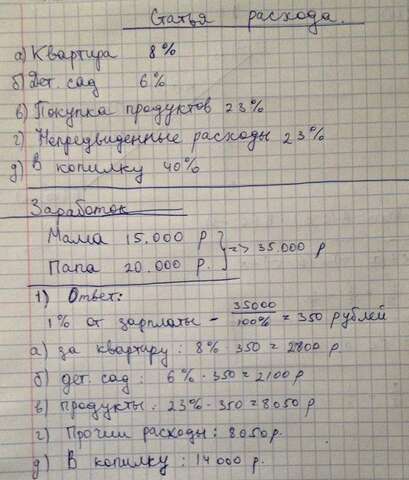 Статья расхода.
а) Квартира 8%
б) Дет. сад 6%
в) Покупка продуктов 23%
г) Непредвиденные расходы 23%
д) В копилку 40%
Заработок
Мама 15.000 р
Папа 20.000 р. } => 35.000 р
1) Ответ:
1% от зарплаты - 35000/100% = 350 рублей
а) за квартиру: 8% · 350 = 2800 р.
б) дет. сад: 6% · 350 = 2100 р
в) продукты: 23% · 350 = 8050 р
г) Прочии расходы: 8050 р.
д) В копилку: 14000 р.